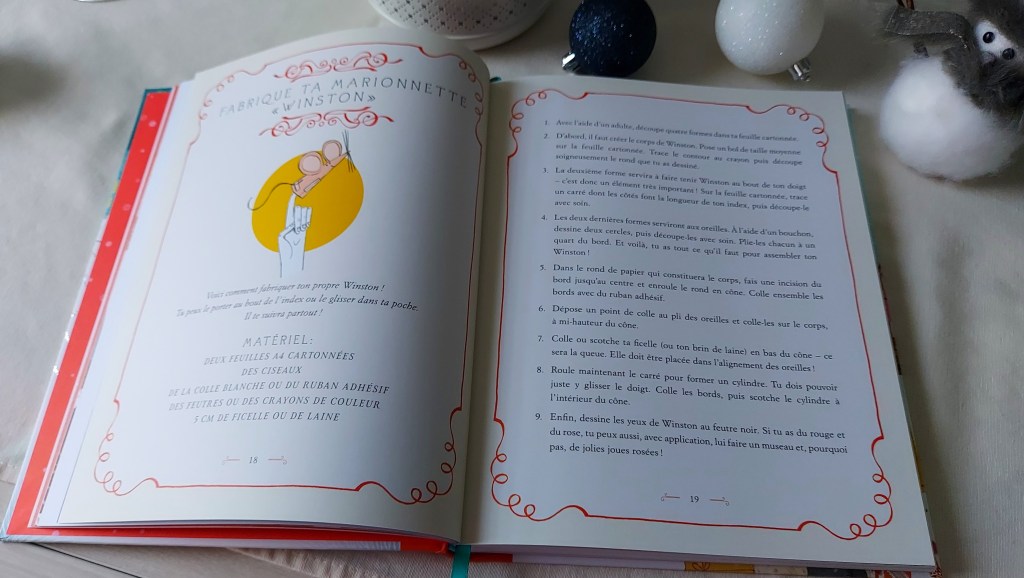 FABRIQUE TA MARIONNETTE
«WINSTON»
Voici comment fabriquer ton propre Winston !
Tu peux le porter au bout de l'index ou le glisser dans ta poche.
Il te suivra partout !
MATÉRIEL:
DEUX FEUILLES A4 CARTONNÉES
DES CISEAUX
DE LA COLLE BLANCHE OU DU RUBAN ADHÉSIF
DES FEUTRES OU DES CRAYONS DE COULEUR
5 CM DE FICELLE OU DE LAINE
18
1. Avec l'aide d'un adulte, découpe quatre formes dans ta feuille cartonnée.
2. D'abord, il faut créer le corps de Winston. Pose un bol de taille moyenne
sur la feuille cartonnée. Trace le contour au crayon puis découpe
soigneusement le rond que tu as dessiné.
3. La deuxième forme servira à faire tenir Winston au bout de ton doigt
– c'est donc un élément très important ! Sur la feuille cartonnée, trace
un carré dont les côtés font la longueur de ton index, puis découpe-le
avec soin.
4. Les deux dernières formes serviront aux oreilles. À l'aide d'un bouchon,
dessine deux cercles, puis découpe-les avec soin. Plie-les chacun à un
quart du bord. Et voilà, tu as tout ce qu'il faut pour assembler ton
Winston !
5. Dans le rond de papier qui constituera le corps, fais une incision du
bord jusqu'au centre et enroule le rond en cône. Colle ensemble les
bords avec du ruban adhésif.
6. Dépose un point de colle au pli des oreilles et colle-les sur le corps,
à mi-hauteur du cône.
7. Colle ou scotche ta ficelle (ou ton brin de laine) en bas du cône – ce
sera la queue. Elle doit être placée dans l'alignement des oreilles !
8. Roule maintenant le carré pour former un cylindre. Tu dois pouvoir
juste y glisser le doigt. Colle les bords, puis scotche le cylindre à
l'intérieur du cône.
9. Enfin, dessine les yeux de Winston au feutre noir. Si tu as du rouge et
du rose, tu peux aussi, avec application, lui faire un museau et, pourquoi
pas, de jolies joues rosées !
19